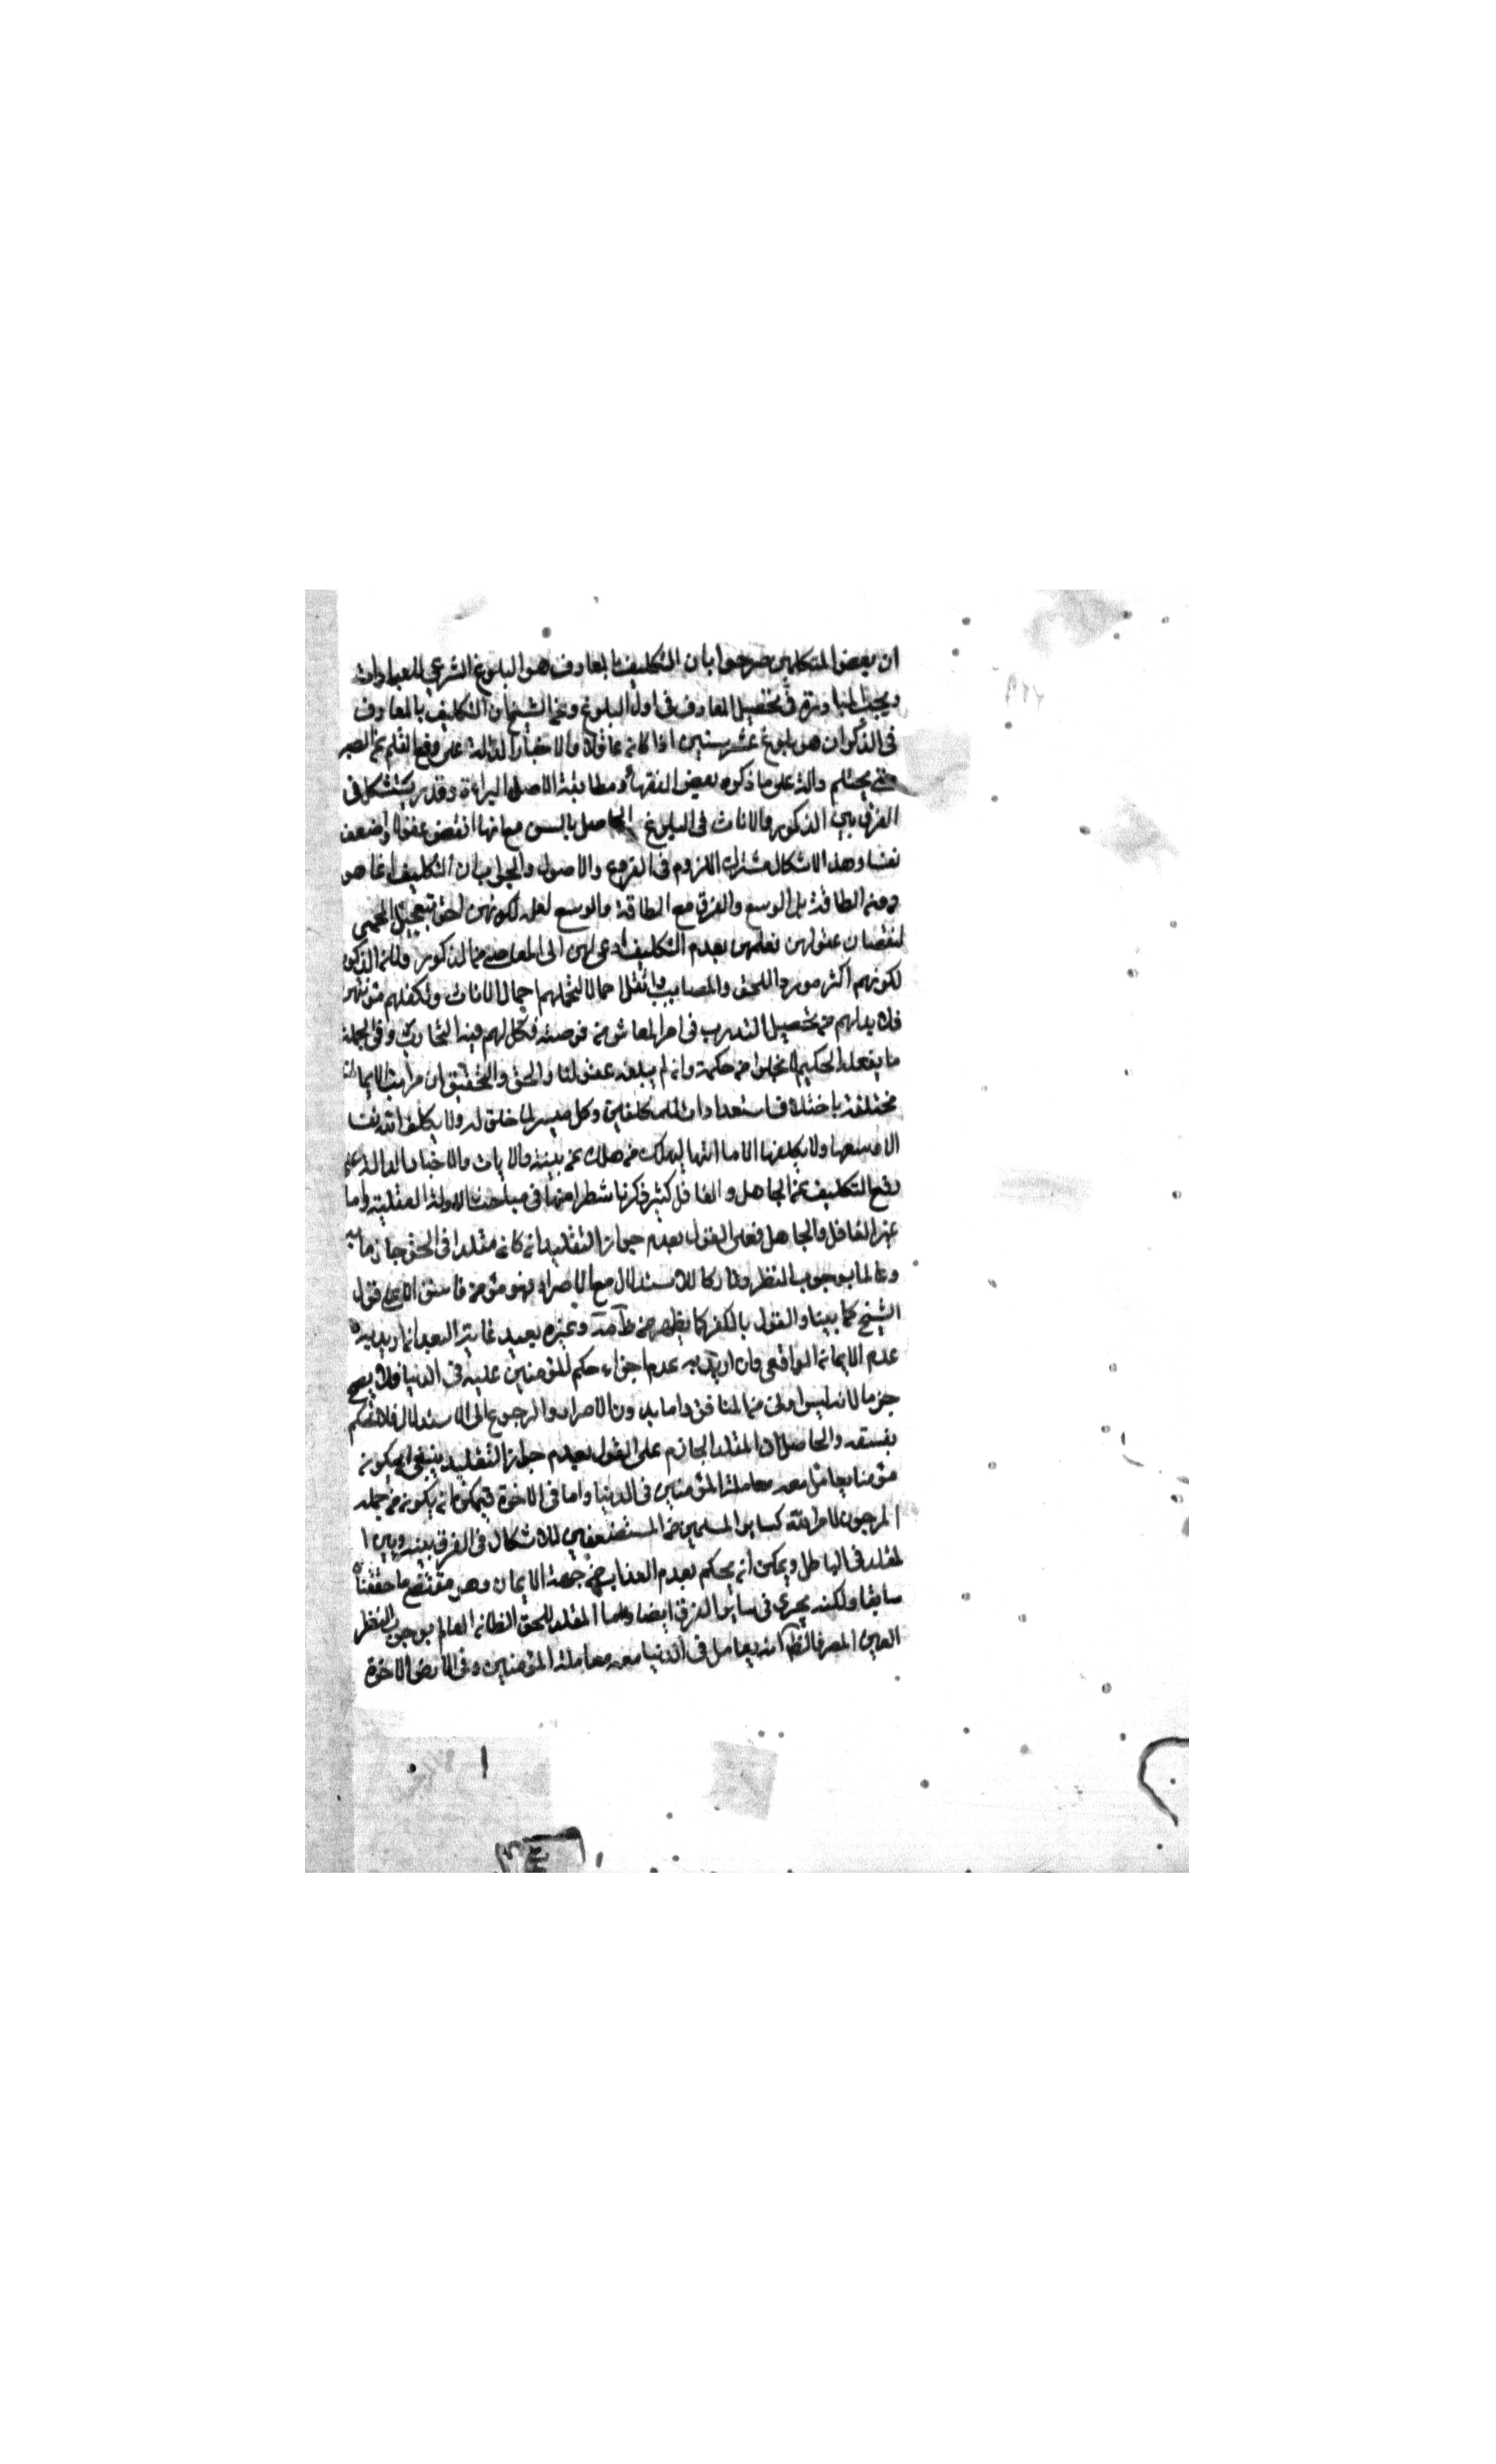 ان بعض المتكلمين صرحوا بان التكليف بالمعارف هو البلوغ الشرعي للعبادات
ويجب المبادرة في تحصيل المعارف في اول البلوغ وعن الشيخ ان التكليف بالمعارف
في الذكران هو بلوغ عشر سنين اذا كان عاقلا والاخبار الدالة على رفع القلم عن الصبي
حتى يحتلم دالة على ما ذكره بعض الفقهاء ومطابقة الاصل البراءة وقد يستشكل في
الفرق بين الذكور والاناث في البلوغ الحاصل بالسن مع انها انقص عقولا واضعف
نفسا وهذا الاشكال مشترك اللزوم في الفروع والاصول والجواب ان التكليف انما هو
دون الطاقة بل الوسع والفرق مع الطاقة والوسع لعله لكونهن احق بتعجيل الحمى
لنقصان عقولهن فعلمهن بعدم التكليف ادعى لهن الى المعاصي من الذكور ولان الذكور
لكونهم اكثر موردا للحق والمصايب واثقل احمالا لتحملهم احمال الاناث وتكفلهم مؤنتهن
فلا بد لهم من تحصيل التدرب في امر المعاش من فرصة تكمل لهم فيه التجارب وفي الجملة
ما يفعله الحكيم لا يخلوا من حكمة وان لم يبلغه عقولنا والحق والتحقيق ان مراتب الايمان
مختلفة باختلاف استعدادات المكلفين وكل ميسر لما خلق له ولا يكلف الله نفسا
الا وسعها ولا يكلفها الا ما اتيها ليهلك من هلك عن بينة والايات والاخبار الدالة على
رفع التكليف عن الجاهل والغافل كثير ذكرنا شطرا منها في مباحث الادلة العقلية واما
غير الغافل والجاهل فعلى القول بعدم جواز التقليد ان كان مقلدا في الحق جازما به
وعالما بوجوب النظر وتاركا للاستدلال مع الاصرار فهو مؤمن فاسق الا على قول
الشيخ كما بينا والقول بالكفر كما يظهر من وغيره بعيد غاية البعد ان اريد به
عدم الايمان الواقعي وان اريد به عدم اجراء حكم المؤمنين عليه في الدنيا فلا يصح
جزما لانه ليس اولى من المنافق واما بدون الاصرار والرجوع الى الاستدلال فلا نحكم
بفسقه والحاصل ان المقلد الجازم على القول بعدم جواز التقليد ينبغي ان يكون
مؤمنا يعامل معه معاملة المؤمنين في الدنيا واما في الاخرة فيمكن ان يكون من جملة
المرجون لامر الله كساير المسلمين من المستضعفين للاشكال في الفرق بينه وبين ا
لمقلد في الباطل ويمكن ان يحكم بعدم العذاب من جهة الايمان وهو مقتضى ما حققناه
سابقا ولكنه يجري في سائر الفرق ايضا واما المقلد للحق الظان العالم بوجوب النظر
الغير المصر فالظ انه يعامل في الدنيا معه معاملة المؤمنين وفي الاخرة